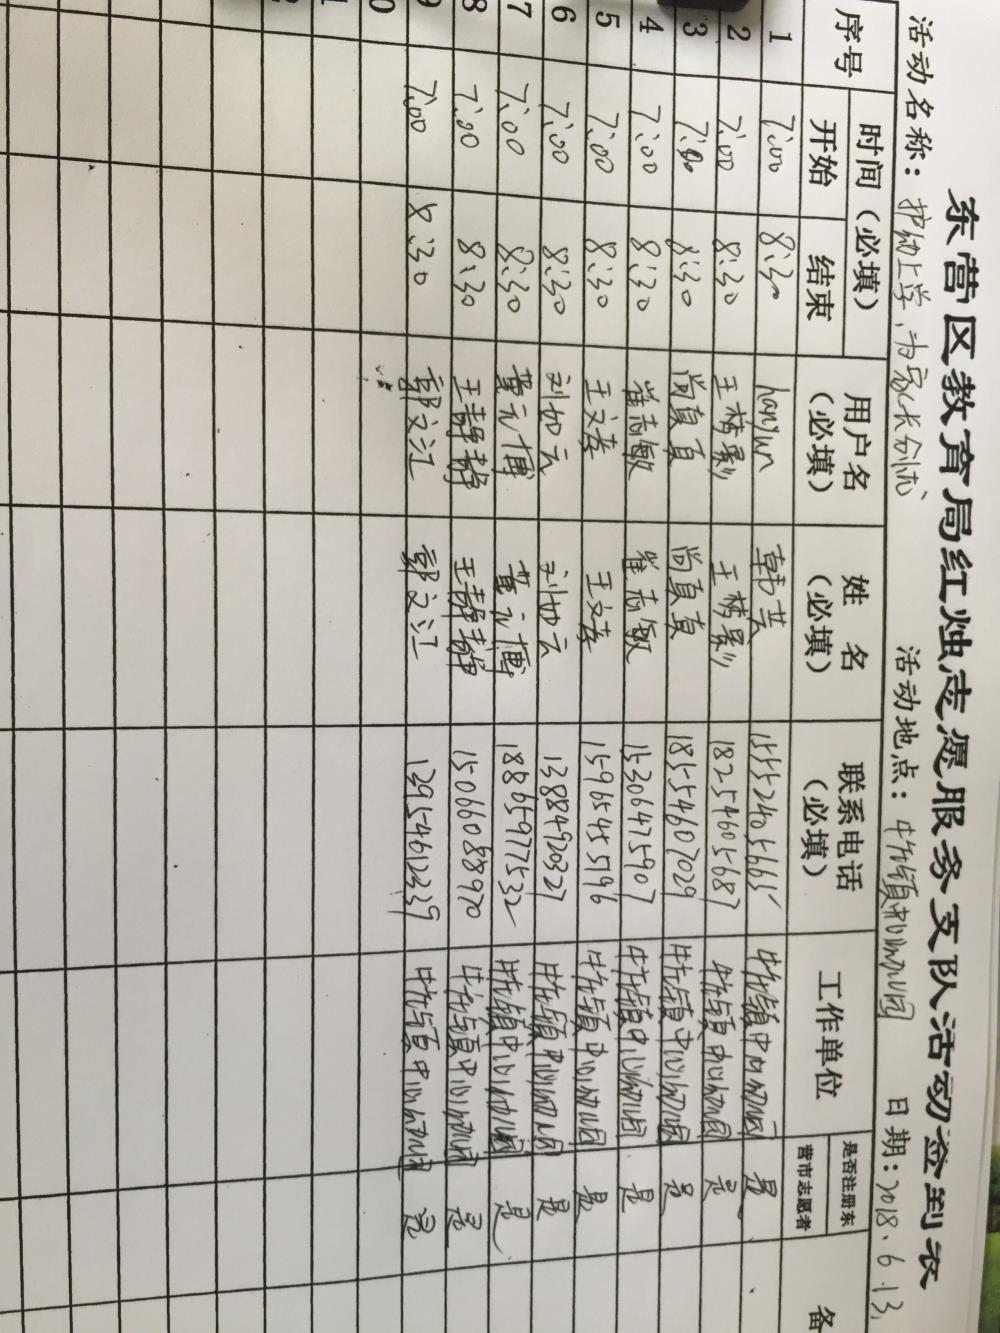 东营区教育局红烛志愿服务支队活动签到表
活动名称：护幼上学、为家长分忧 活动地点：牛庄镇中心幼儿园 日期：2018.6.13
序号 时间（必填） 用户名（必填） 姓 名（必填） 联系电话（必填） 工作单位 是否注册东营市志愿者 备
开始 结束
1 7:00 8:30 hanyun 韩芸 15552405665 牛庄镇中心幼儿园 是
2 7:00 8:30 王梦影 王梦影 18254605687 牛庄镇中心幼儿园 是
3 7:00 8:30 尚真真 尚真真 18554607029 牛庄镇中心幼儿园 是
4 7:00 8:30 崔志敏 崔志敏 15306475907 牛庄镇中心幼儿园 是
5 7:00 8:30 王文孝 王文孝 15965455196 牛庄镇中心幼儿园 是
6 7:00 8:30 刘如云 刘如云 13884920327 牛庄镇中心幼儿园 是
7 7:00 8:30 董元博 董元博 18865977532 牛庄镇中心幼儿园 是
8 7:00 8:30 王静静 王静静 15066088970 牛庄镇中心幼儿园 是
9 7:00 8:30 郭文江 郭文江 13954612339 牛庄镇中心幼儿园 是
0
1